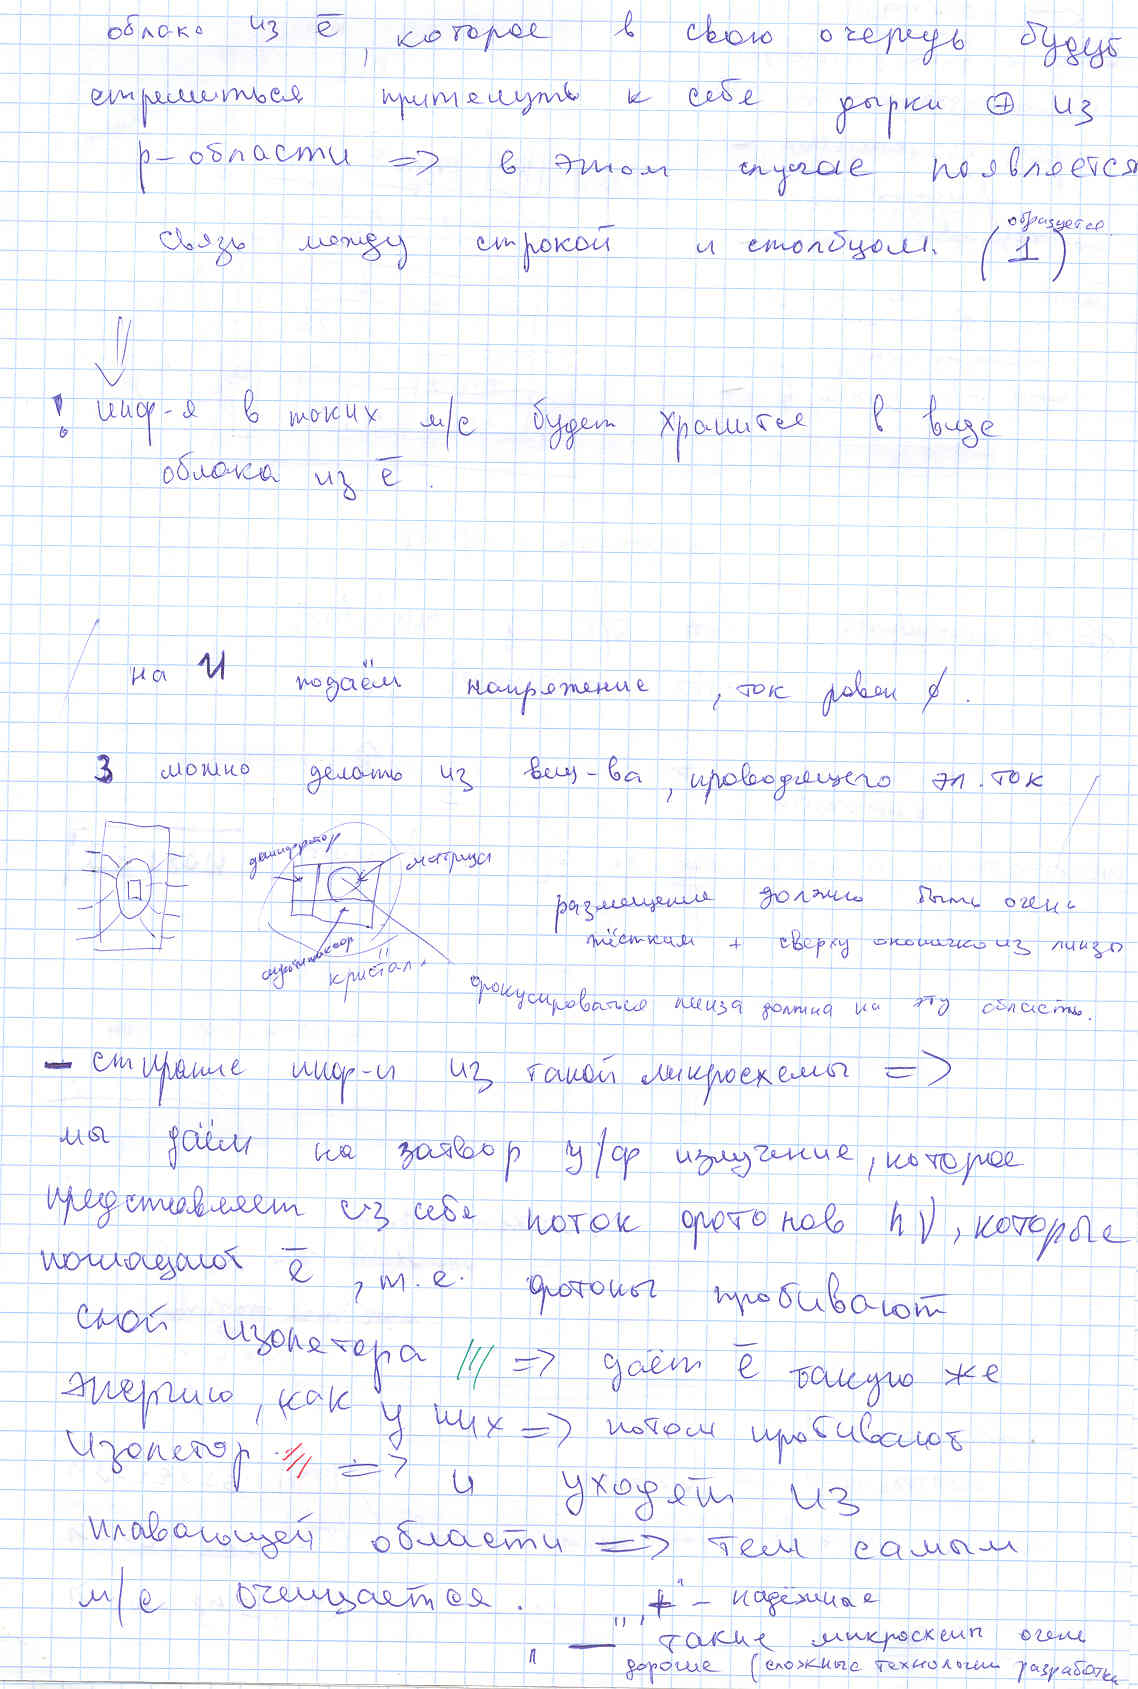 облако из ē, которое в свою очередь будут
стремиться притянуть к себе дырки ⊕ из
p-области => в этом случае появляется
образуется
связь между строкой и столбцом. (1)
! инф-я в таких м/с будет хранится в виде
облака из ē.
на И подаём напряжение, ток равен ∅.
З можно делать из вещ-ва, проводящего эл. ток
дешифратор
матрица
размещение должно быть очень
жёстким + сверху окошечко из линзы
кристалл.
фокусироваться линза должна на эту область.
– стирание инф-и из такой микросхемы =>
мы даём на затвор у/ф излучение, которое
представляет из себя поток фотонов hν, которые
поглащают ē, т.е. фотоны пробивают
слой изолятора /// => даёт ē такую же
энергию, как у них => потом пробивают
изолятор /// => и уходят из
плавающей области => тем самым
м/с очищается. "+" – надёжные
"—" такие микросхемы очень
дорогие (сложные технологии разработки